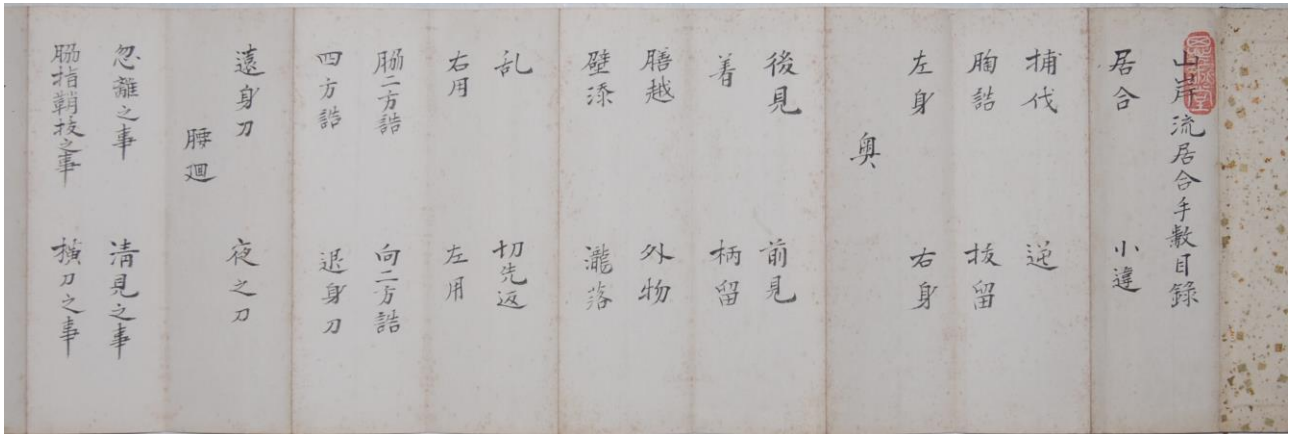 山岸流居合手數目錄
居合 小違
捕伐 逆
胸詰 抜留
左身 右身
奥
後見 前見
着 柄留
膳越 外物
壁添 瀧落
乱 切先返
右用 左用
脇二方詰 向二方詰
四方詰 退身刀
遠身刀 夜之刀
腰廻
忽離之事 清見之事
脇指鞘技之事 横刀之事